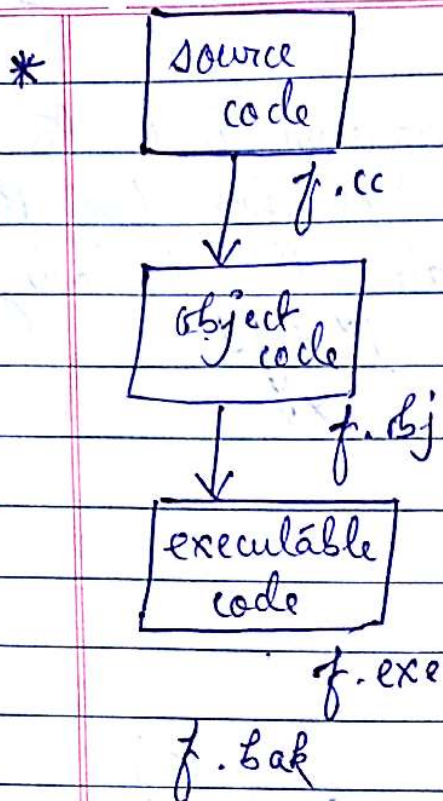 *
source
code
f.cc
object
code
f.obj
executable
code
f.exe
f.bak